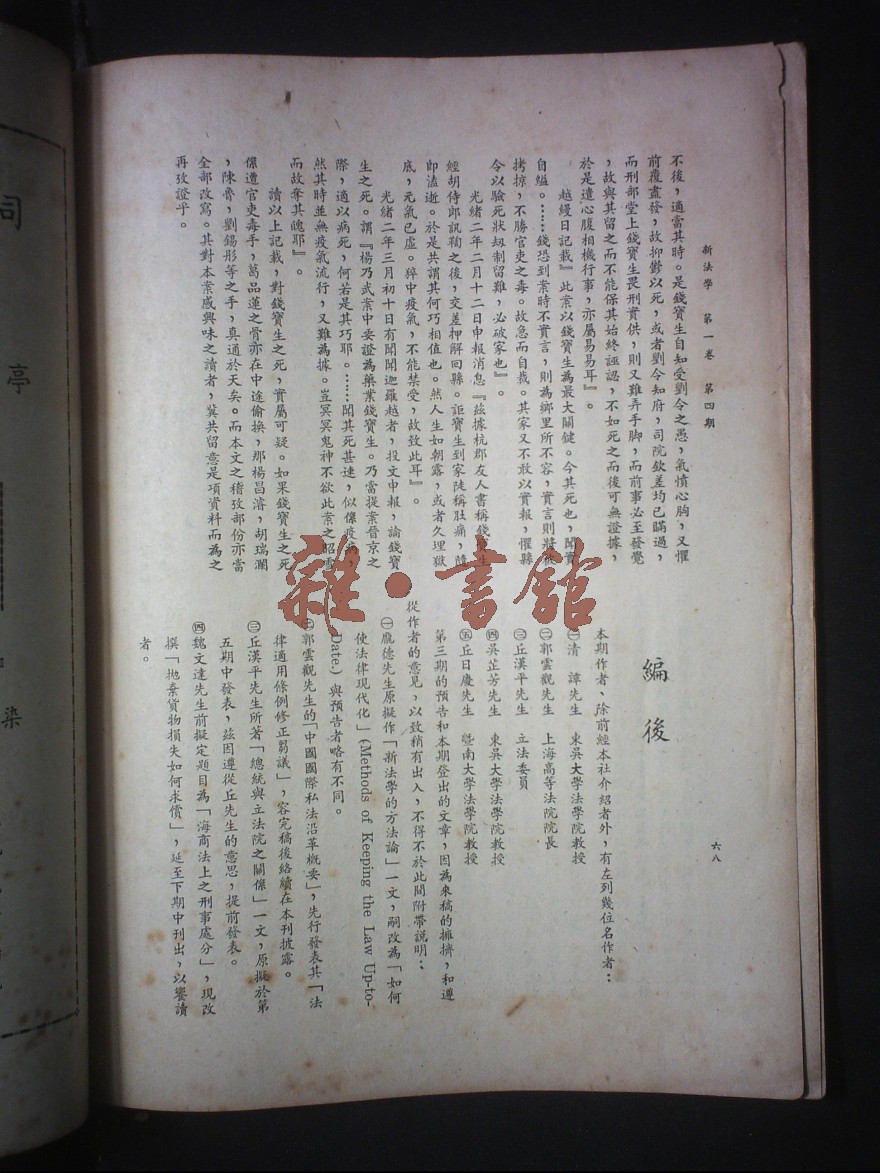 新法學 第一卷 第四期
六八
不後，適當其時。是錢寶生自知受劉令之愚，氣憤心胸，又懼
前覆盡發，故抑鬱以死，或者劉令知府，司院欽差均已瞞過，
而刑部堂上錢寶生畏刑實供，則又難弄手脚，而前事必至發覺
，故與其留之而不能保其始終誣認，不如死之而後可無證據，
於是遣心腹相機行事，亦屬易易耳』。
越縵日記載『此案以錢寶生為最大關鍵。今其死也，聞實
自縊。……錢恐到案時不實言，則為鄉里所不容，實言則將被
拷掠，不勝官吏之毒。故急而自裁。其家又不敢以實報，懼縣
令以驗死狀刼制留難，必破家也』。
光緒二年二月十二日申報消息『茲據杭郡友人書稱錢寶生
經胡侍郎訊鞫之後，交差押解回縣。詎寶生到家陡稱肚痛，隨
即溘逝。於是共謂其何巧相值也。然人生如朝露，或者久埋獄
底，元氣已虛。猝中疫氣，不能禁受，故致此耳』。
光緒二年三月初十日有聞聞迦羅越者，投文申報，論錢寶
生之死。謂『楊乃武案中要證為藥業錢寶生。乃當提案晉京之
際，適以病死，何若是其巧耶。……聞其死甚速，似係疫病，
然其時並無疫氣流行，又難為據。豈冥冥鬼神不欲此案之昭雪
而故奪其魄耶』。
讀以上記載，對錢寶生之死，實屬可疑。如果錢寶生之死
係遭官吏毒手，葛品蓮之骨亦在中途偷換，那楊昌濬，胡瑞瀾
，陳魯，劉錫彤等之手，真通於天矣。而本文之稽攷部份亦當
全部改寫。其對本案感興味之讀者，冀共留意是項資料而為之
再攷證乎。
編後
本期作者、除前經本社介紹者外，有左列幾位名作者：
㊀清 譚先生 東吳大學法學院教授
㊁郭雲觀先生 上海高等法院院長
㊂丘漢平先生 立法委員
㊃吳芷芳先生 東吳大學法學院教授
㊄丘日慶先生 暨南大學法學院教授
第三期的預告和本期登出的文章，因為來稿的擁擠，和遵
從作者的意見，以致稍有出入，不得不於此間附帶説明：
㊀龐德先生原擬作「新法學的方法論」一文，嗣改為「如何
使法律現代化」(Methods of Keeping the Law Up-to-
Date.) 與預告者略有不同。
㊁郭雲觀先生的「中國國際私法沿革概要」，先行發表其「法
律適用條例修正芻議」，容完稿後絡續在本刊披露。
㊂丘漢平先生所著「總統與立法院之關係」一文，原擬於第
五期中發表，茲因遵從丘先生的意思，提前發表。
㊃魏文達先生前擬定題目為「海商法上之刑事處分」，現改
撰「拋棄貨物損失如何求償」，延至下期中刊出，以饗讀
者。
雜·書館
同
亭
染